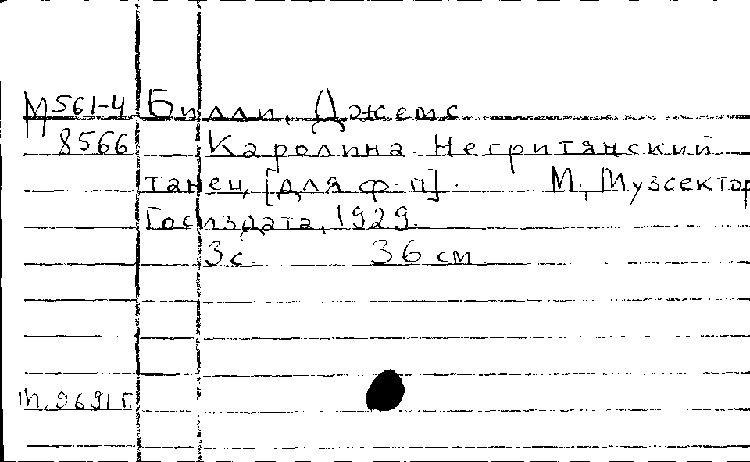 М 561-4 Билли, Джемс
8566 Каролина. Негритянский
танец, [для ф-п]. М., Музсектор
Госиздата, 1929.
3 с. 36 см